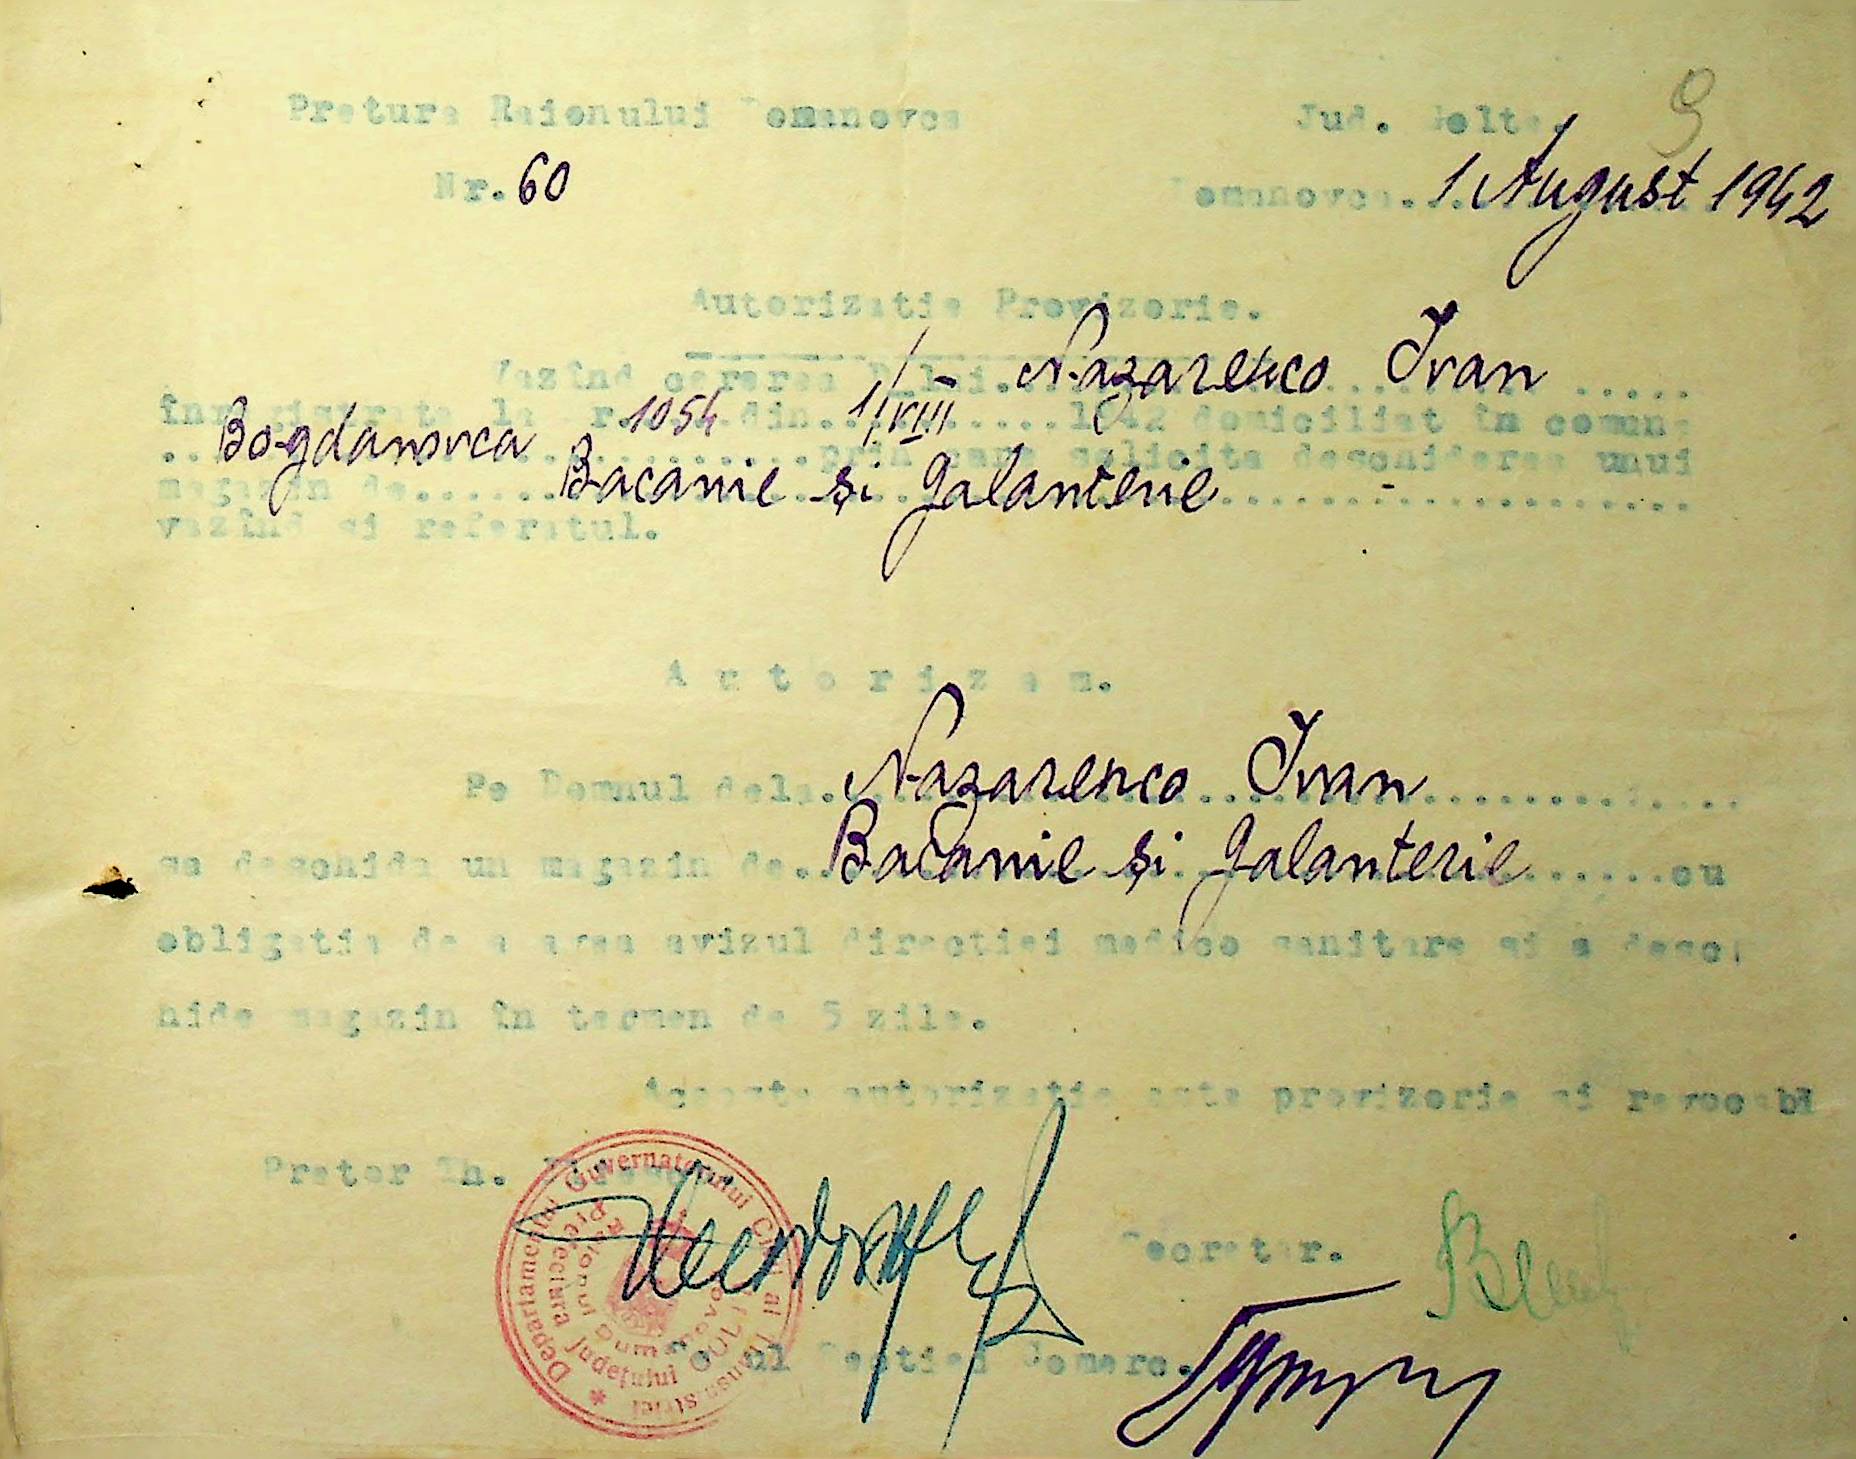 9
Pretura Raionului Domanovca
Jud. Golta.
Nr. 60
Domanovca. 1 August 1942
Autorizatie Provizorie.
Vazînd cererea D-lui. Nazarenco Ivan .....
înregistrata la Nr. 1054 din. 1/VIII 1942 domiciliat în comuna
Bogdanovca prin care solicita deschiderea unui
magazin de...... Bacanie și galanterie
vazînd si referatul.
A u t o r i z a m.
Pe Domnul dela. Nazarenco Ivan
se deschida un magazin de.. Bacanie și galanterie ......cu
obligatia de a avea avizul directiei medico sanitare si a desc
hide magazin în termen de 5 zile.
Aceasta autorizatie este provizorie si revocabi
Pretor Th.
Secretar.
Sectiei Comerc.
* Departamentul Guvernatorului Civil al Transnistriei
Prefectura Județului GOLTA
Raionul Dumanovca